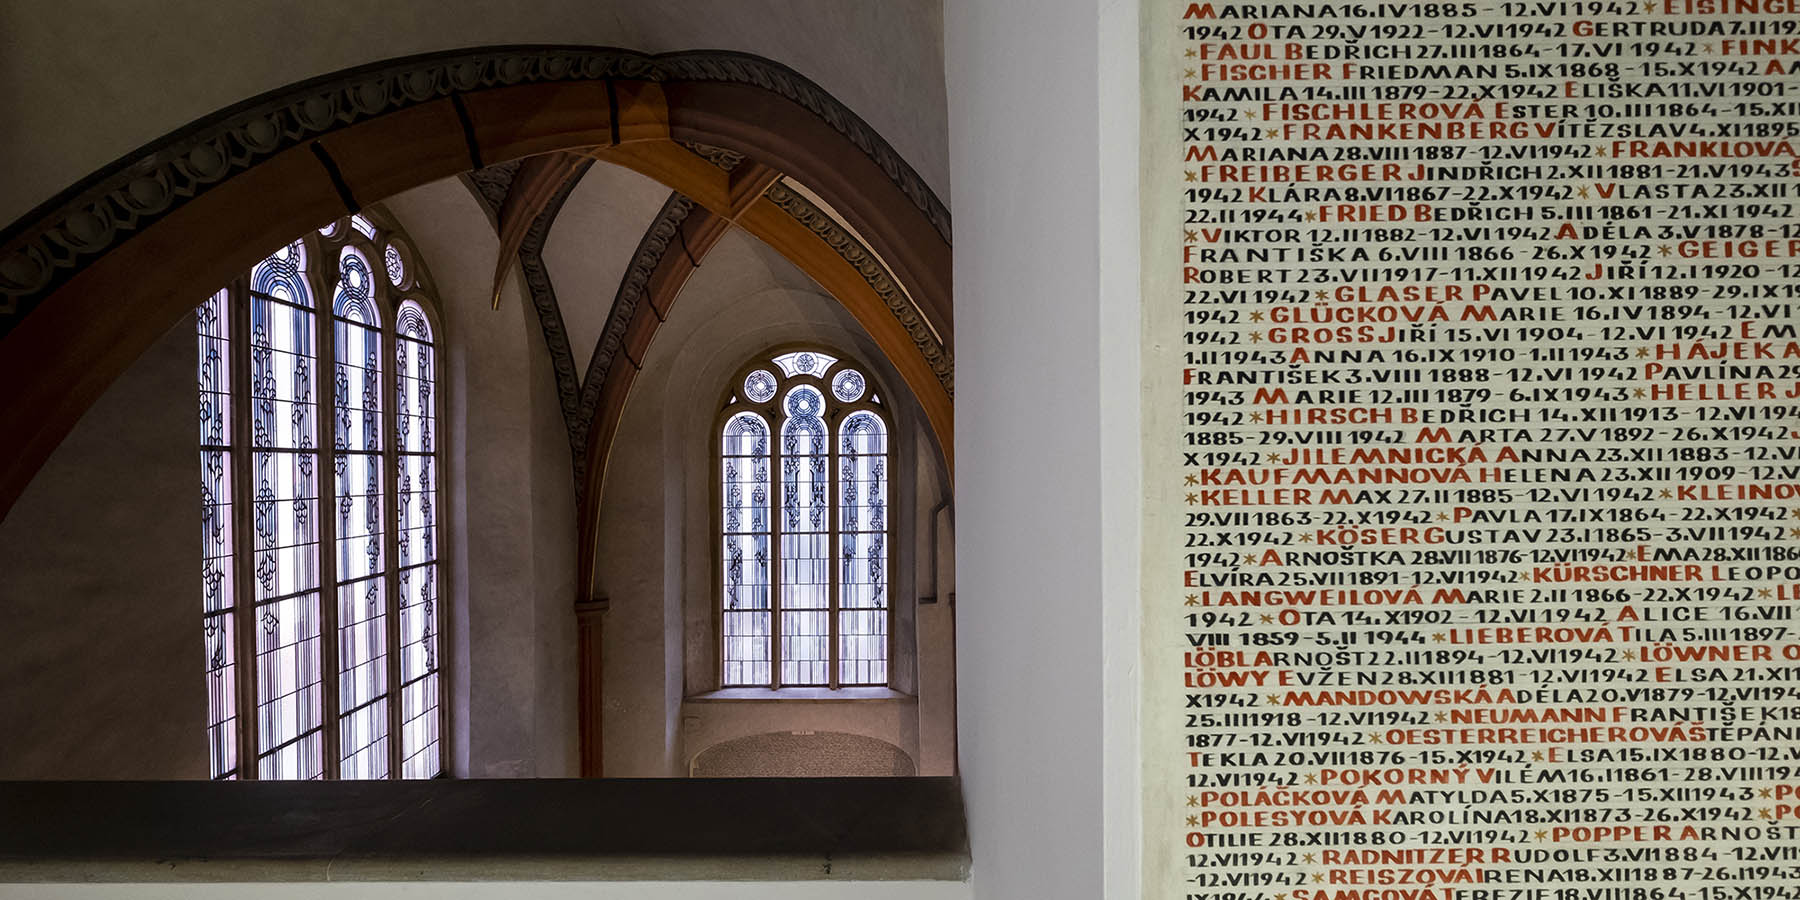 MARIANA 16.IV 1885 - 12.VI 1942 * EISINGE
1942 OTA 29.V 1922 - 12.VI 1942 GERTRUDA 7.II 19
* FAUL BEDŘICH 27.III 1864 - 17.VI 1942 * FINK
* FISCHER FRIEDMAN 5.IX 1868 - 15.X 1942 A
KAMILA 14.III 1879 - 22.X 1942 ELIŠKA 11.VI 1901 -
1942 * FISCHLEROVÁ ESTER 10.III 1864 - 15.XII
X 1942 * FRANKENBERG VÍTĚZSLAV 4.XI 1895
MARIANA 28.VIII 1887 - 12.VI 1942 * FRANKLOVÁ
* FREIBERGER JINDŘICH 2.XII 1881 - 21.V 1943 S
1942 KLÁRA 8.VI 1867 - 22.X 1942 * VLASTA 23.XII 1
22.II 1944 * FRIED BEDŘICH 5.III 1861 - 21.XI 1942
* VIKTOR 12.II 1882 - 12.VI 1942 ADÉLA 3.V 1878 - 12
FRANTIŠKA 6.VIII 1866 - 26.X 1942 * GEIGER
ROBERT 23.VII 1917 - 11.XII 1942 JIŘÍ 12.I 1920 - 12
22.VI 1942 * GLASER PAVEL 10.XI 1889 - 29.IX 19
1942 * GLÜCKOVÁ MARIE 16.IV 1894 - 12.VI
1942 * GROSS JIŘÍ 15.VI 1904 - 12.VI 1942 EM
1.II 1943 ANNA 16.IX 1910 - 1.II 1943 * HÁJEK A
FRANTIŠEK 3.VIII 1888 - 12.VI 1942 PAVLÍNA 29
1943 MARIE 12.III 1879 - 6.IX 1943 * HELLER J
1942 * HIRSCH BEDŘICH 14.XII 1913 - 12.VI 194
1885 - 29.VIII 1942 MARTA 27.V 1892 - 26.X 1942 J
X 1942 * JILEMNICKÁ ANNA 23.XII 1883 - 12.VI
* KAUFMANNOVÁ HELENA 23.XII 1909 - 12.V
* KELLER MAX 27.II 1885 - 12.VI 1942 * KLEINOV
29.VII 1863 - 22.X 1942 * PAVLA 17.IX 1864 - 22.X 1942 *
22.X 1942 * KÖSER GUSTAV 23.I 1865 - 3.VIII 1942 *
1942 * ARNOŠTKA 28.VII 1876 - 12.VI 1942 * EMA 28.XII 186
ELVÍRA 25.VII 1891 - 12.VI 1942 * KÜRSCHNER LEOPO
* LANGWEILOVÁ MARIE 2.II 1866 - 22.X 1942 * LE
1942 * OTA 14.X 1902 - 12.VI 1942 ALICE 16.VII
VIII 1859 - 5.II 1944 * LIEBEROVÁ TILA 5.III 1897 -
LÖBL ARNOŠT 22.II 1894 - 12.VI 1942 * LÖWNER O
LÖWY EVŽEN 28.XII 1881 - 12.VI 1942 ELSA 21.XI 1
X 1942 * MANDOWSKÁ ADÉLA 20.V 1879 - 12.VI 194
25.III 1918 - 12.VI 1942 * NEUMANN FRANTIŠEK 18
1877 - 12.VI 1942 * OESTERREICHEROVÁ ŠTĚPÁN
TEKLA 20.VII 1876 - 15.X 1942 * ELSA 15.IX 1880 - 12.V
12.VI 1942 * POKORNÝ VILÉM 16.I 1861 - 28.VIII 194
* POLÁČKOVÁ MATYLDA 5.X 1875 - 15.XII 1943 * PO
* POLESYOVÁ KAROLÍNA 18.XI 1873 - 26.X 1942 * PO
OTILIE 28.XII 1880 - 12.VI 1942 * POPPER ARNOŠT
12.VI 1942 * RADNITZER RUDOLF 3.VI 1884 - 12.VI
- 12.VI 1942 * REISZOVÁ IRENA 18.XII 1887 - 26.I 1943
IX 1944 * SAMCOVÁ TEREZIE 18.VIII 1864 - 15.X 1942